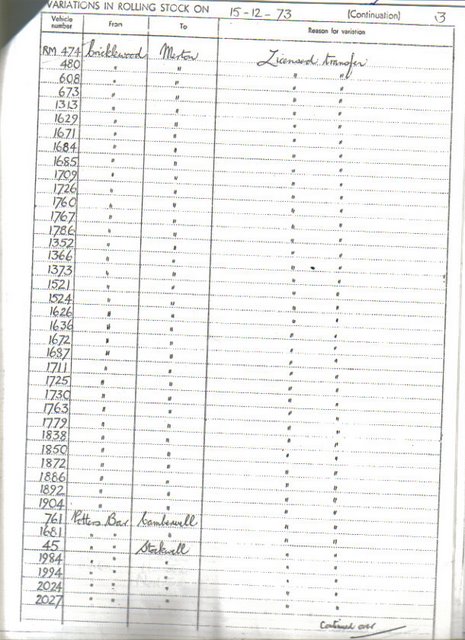 VARIATIONS IN ROLLING STOCK ON 15-12-73 (Continuation) 3
Vehicle number From To Reason for variation
RM 474 Cricklewood Merton Licensed transfer
480 " " " "
608 " " " "
673 " " " "
1313 " " " "
1629 " " " "
1671 " " " "
1684 " " " "
1685 " " " "
1709 " " " "
1726 " " " "
1760 " " " "
1767 " " " "
1786 " " " "
1352 " " " "
1366 " " " "
1373 " " " "
1521 " " " "
1524 " " " "
1626 " " " "
1636 " " " "
1672 " " " "
1687 " " " "
1711 " " " "
1725 " " " "
1730 " " " "
1763 " " " "
1779 " " " "
1838 " " " "
1850 " " " "
1872 " " " "
1886 " " " "
1892 " " " "
1904 " " " "
761 Potters Bar Camberwell " "
1681 " " " " "
45 " " Stockwell " "
1984 " " " " "
1994 " " " " "
2024 " " " " "
2027 " " " " "
Continued over